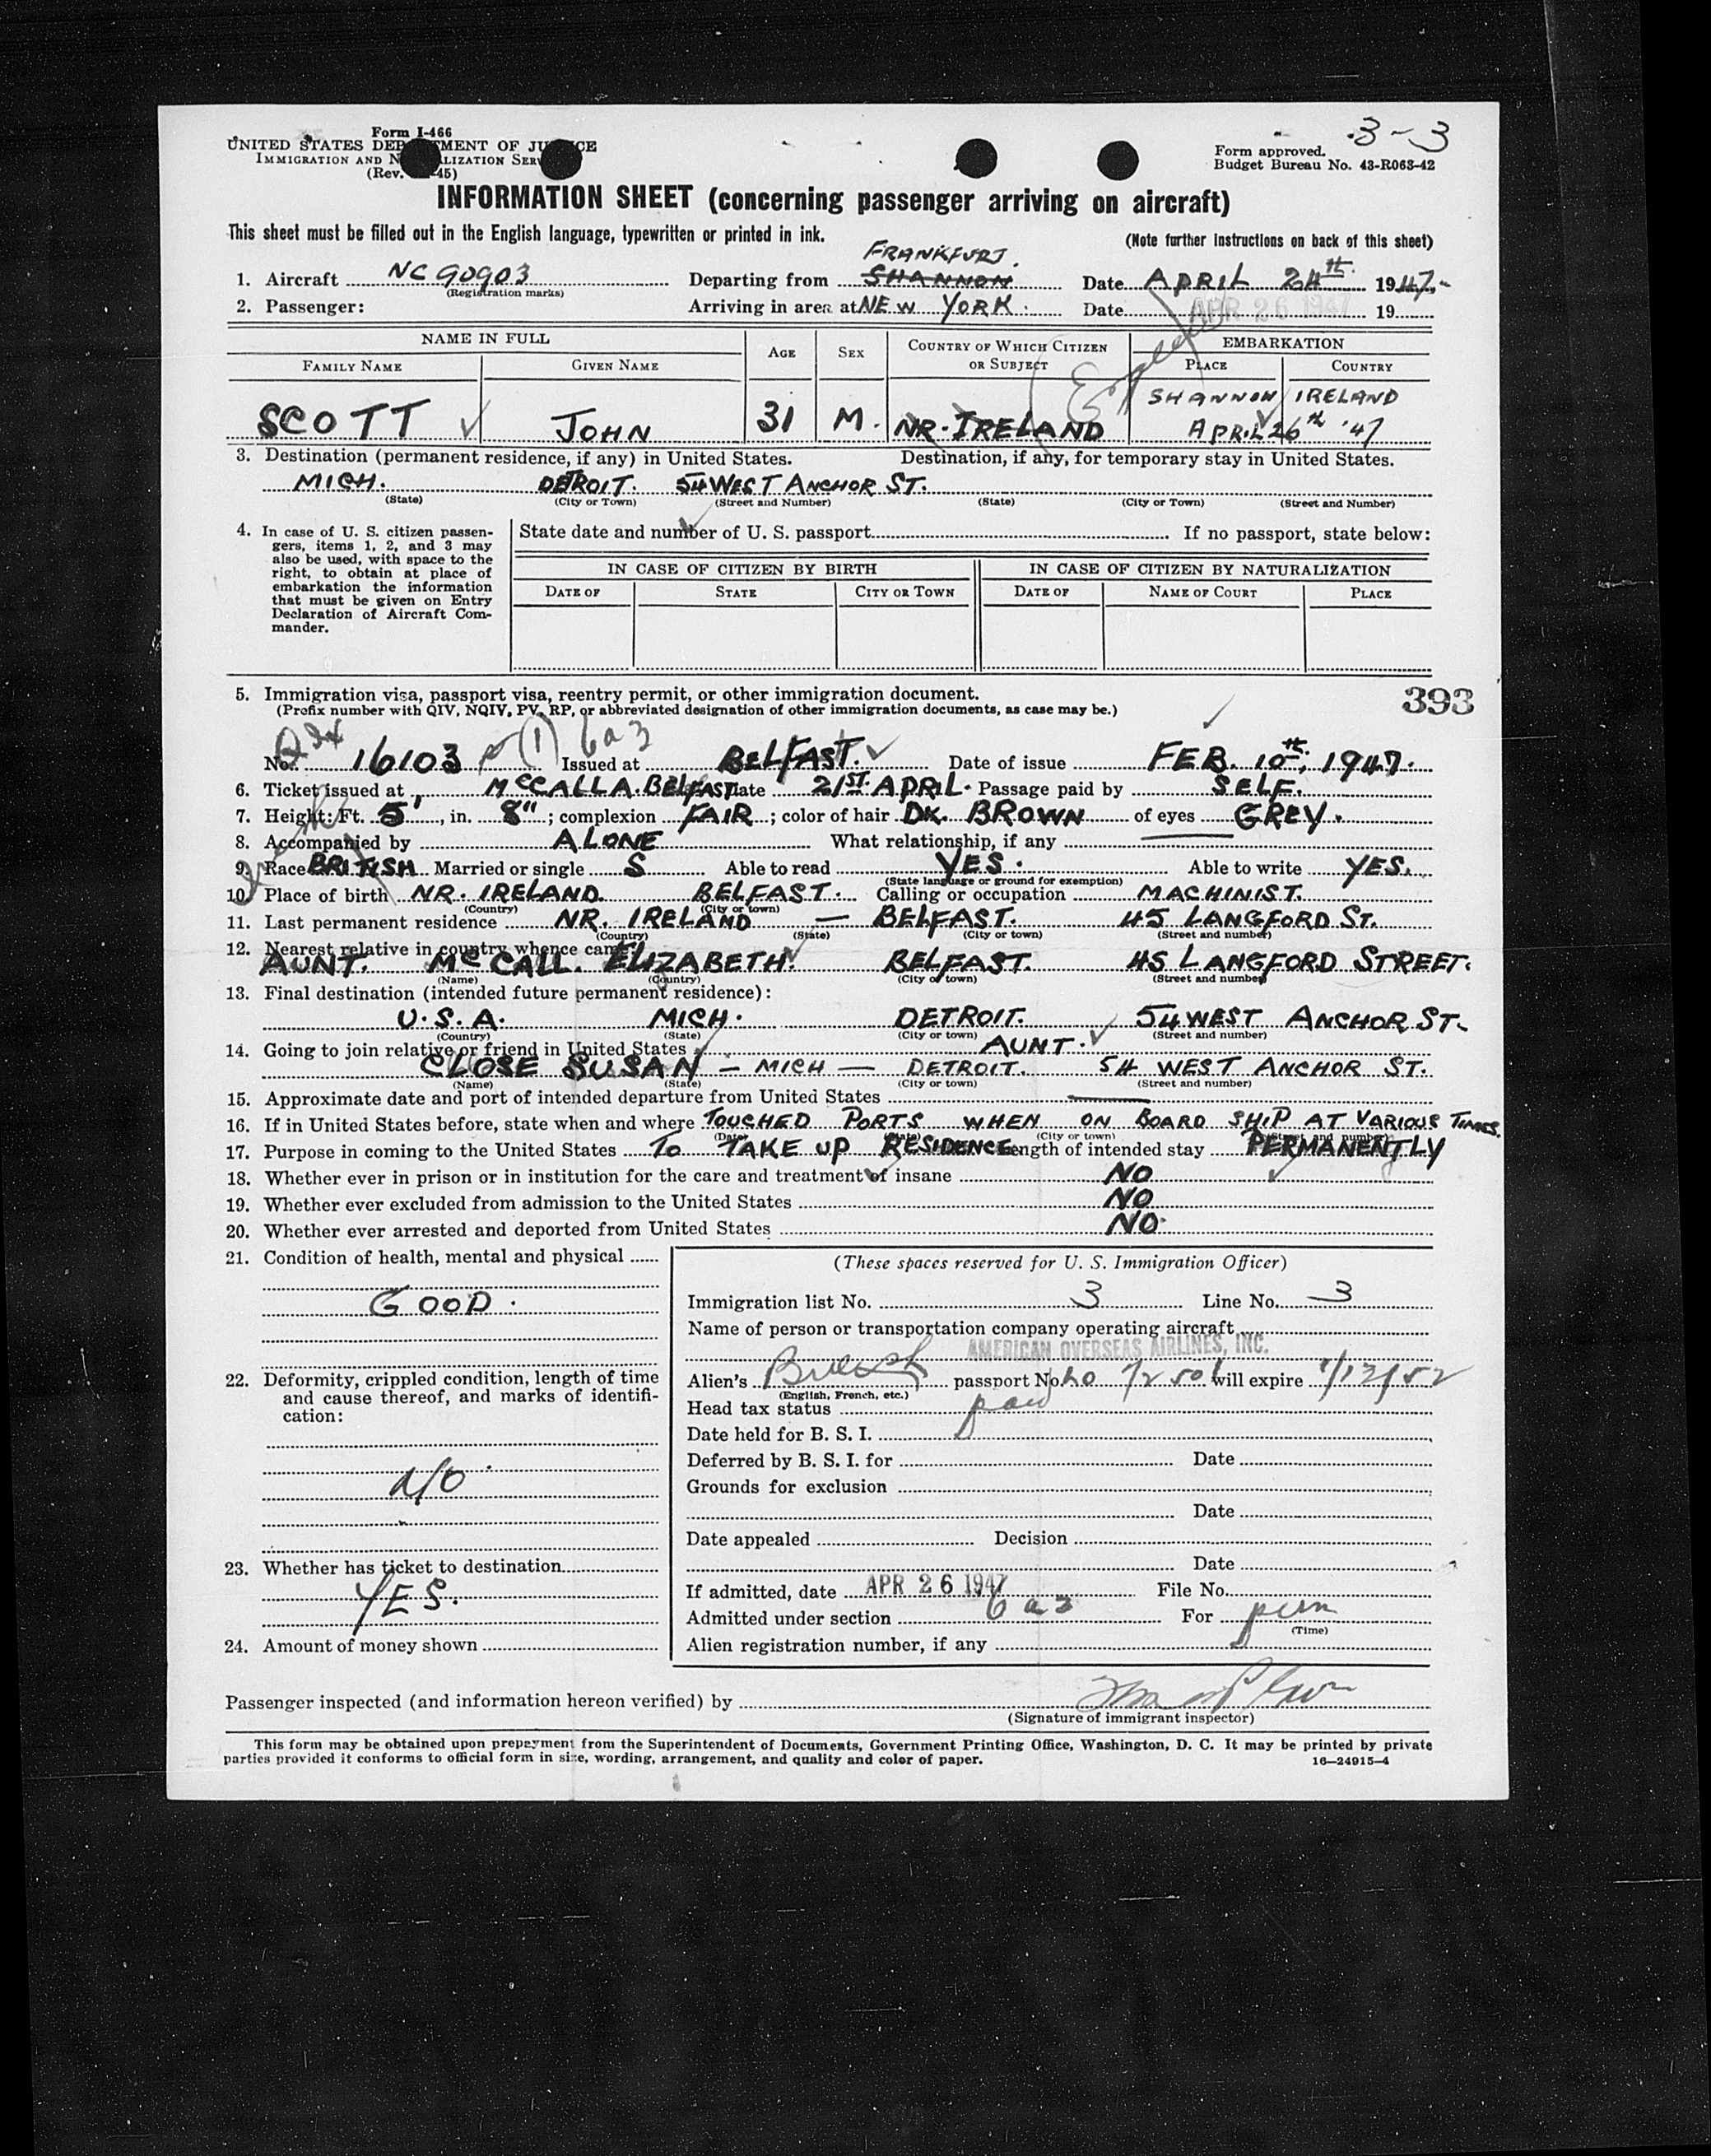 3-3
Form I-466
UNITED STATES DEP TMENT OF JU CE
IMMIGRATION AND N LIZATION SER
(Rev. 45)
Form approved.
Budget Bureau No. 43-R063-42
INFORMATION SHEET (concerning passenger arriving on aircraft)
This sheet must be filled out in the English language, typewritten or printed in ink.
(Note further instructions on back of this sheet)
FRANKFURT.
1. Aircraft NC 90903 Departing from SHANNON Date APRIL 24th 1947.
(Registration marks)
2. Passenger: Arriving in area at NEW YORK. Date APR 26 1947 19
NAME IN FULL AGE SEX COUNTRY OF WHICH CITIZEN OR SUBJECT EMBARKATION
FAMILY NAME GIVEN NAME PLACE COUNTRY
SHANNON IRELAND
SCOTT JOHN 31 M. NR. IRELAND APRIL 26th '47
3. Destination (permanent residence, if any) in United States. Destination, if any, for temporary stay in United States.
MICH. DETROIT. 54 WEST ANCHOR ST.
(State) (City or Town) (Street and Number) (State) (City or Town) (Street and Number)
4. In case of U. S. citizen passengers, items 1, 2, and 3 may also be used, with space to the right, to obtain at place of embarkation the information that must be given on Entry Declaration of Aircraft Commander.
State date and number of U. S. passport If no passport, state below:
IN CASE OF CITIZEN BY BIRTH IN CASE OF CITIZEN BY NATURALIZATION
DATE OF STATE CITY OR TOWN DATE OF NAME OF COURT PLACE
5. Immigration visa, passport visa, reentry permit, or other immigration document. 393
(Prefix number with QIV, NQIV, PV, RP, or abbreviated designation of other immigration documents, as case may be.)
(1) 6a3
No. 16103 Issued at BELFAST. Date of issue FEB. 10th, 1947.
6. Ticket issued at McCALLA. BELFAST Date 21ST APRIL. Passage paid by SELF.
7. Height: Ft. 5', in. 8"; complexion FAIR; color of hair DK. BROWN of eyes GREY.
8. Accompanied by ALONE What relationship, if any
9. Race BRITISH Married or single S Able to read YES. Able to write YES.
(State language or ground for exemption)
10. Place of birth NR. IRELAND. BELFAST. Calling or occupation MACHINIST.
(Country) (City or town)
11. Last permanent residence NR. IRELAND — BELFAST. 45 LANGFORD ST.
(Country) (State) (City or town) (Street and number)
12. Nearest relative in country whence came
AUNT. McCALL. ELIZABETH. BELFAST. 45 LANGFORD STREET.
(Name) (Country) (City or town) (Street and number)
13. Final destination (intended future permanent residence):
U.S.A. MICH. DETROIT. 54 WEST ANCHOR ST.
(Country) (State) (City or town) (Street and number)
14. Going to join relative or friend in United States AUNT.
CLOSE SUSAN — MICH — DETROIT. 54 WEST ANCHOR ST.
(Name) (State) (City or town) (Street and number)
15. Approximate date and port of intended departure from United States
16. If in United States before, state when and where TOUCHED PORTS WHEN ON BOARD SHIP AT VARIOUS TIMES.
(Date) (State) (City or town) (Street and number)
17. Purpose in coming to the United States TO TAKE UP RESIDENCE Length of intended stay PERMANENTLY
18. Whether ever in prison or in institution for the care and treatment of insane NO
19. Whether ever excluded from admission to the United States NO
20. Whether ever arrested and deported from United States NO.
21. Condition of health, mental and physical
GOOD.
22. Deformity, crippled condition, length of time and cause thereof, and marks of identification:
NO
23. Whether has ticket to destination
YES.
24. Amount of money shown
(These spaces reserved for U. S. Immigration Officer)
Immigration list No. 3 Line No. 3
Name of person or transportation company operating aircraft
AMERICAN OVERSEAS AIRLINES, INC.
Alien's British passport No. will expire 1/12/52
(English, French, etc.)
Head tax status paid
Date held for B. S. I.
Deferred by B. S. I. for Date
Grounds for exclusion
Date
Date appealed Decision
Date
If admitted, date APR 26 1947 File No.
Admitted under section 6 a 3 For perm
(Time)
Alien registration number, if any
Passenger inspected (and information hereon verified) by
(Signature of immigrant inspector)
This form may be obtained upon prepayment from the Superintendent of Documents, Government Printing Office, Washington, D. C. It may be printed by private
parties provided it conforms to official form in size, wording, arrangement, and quality and color of paper. 16—24915-4